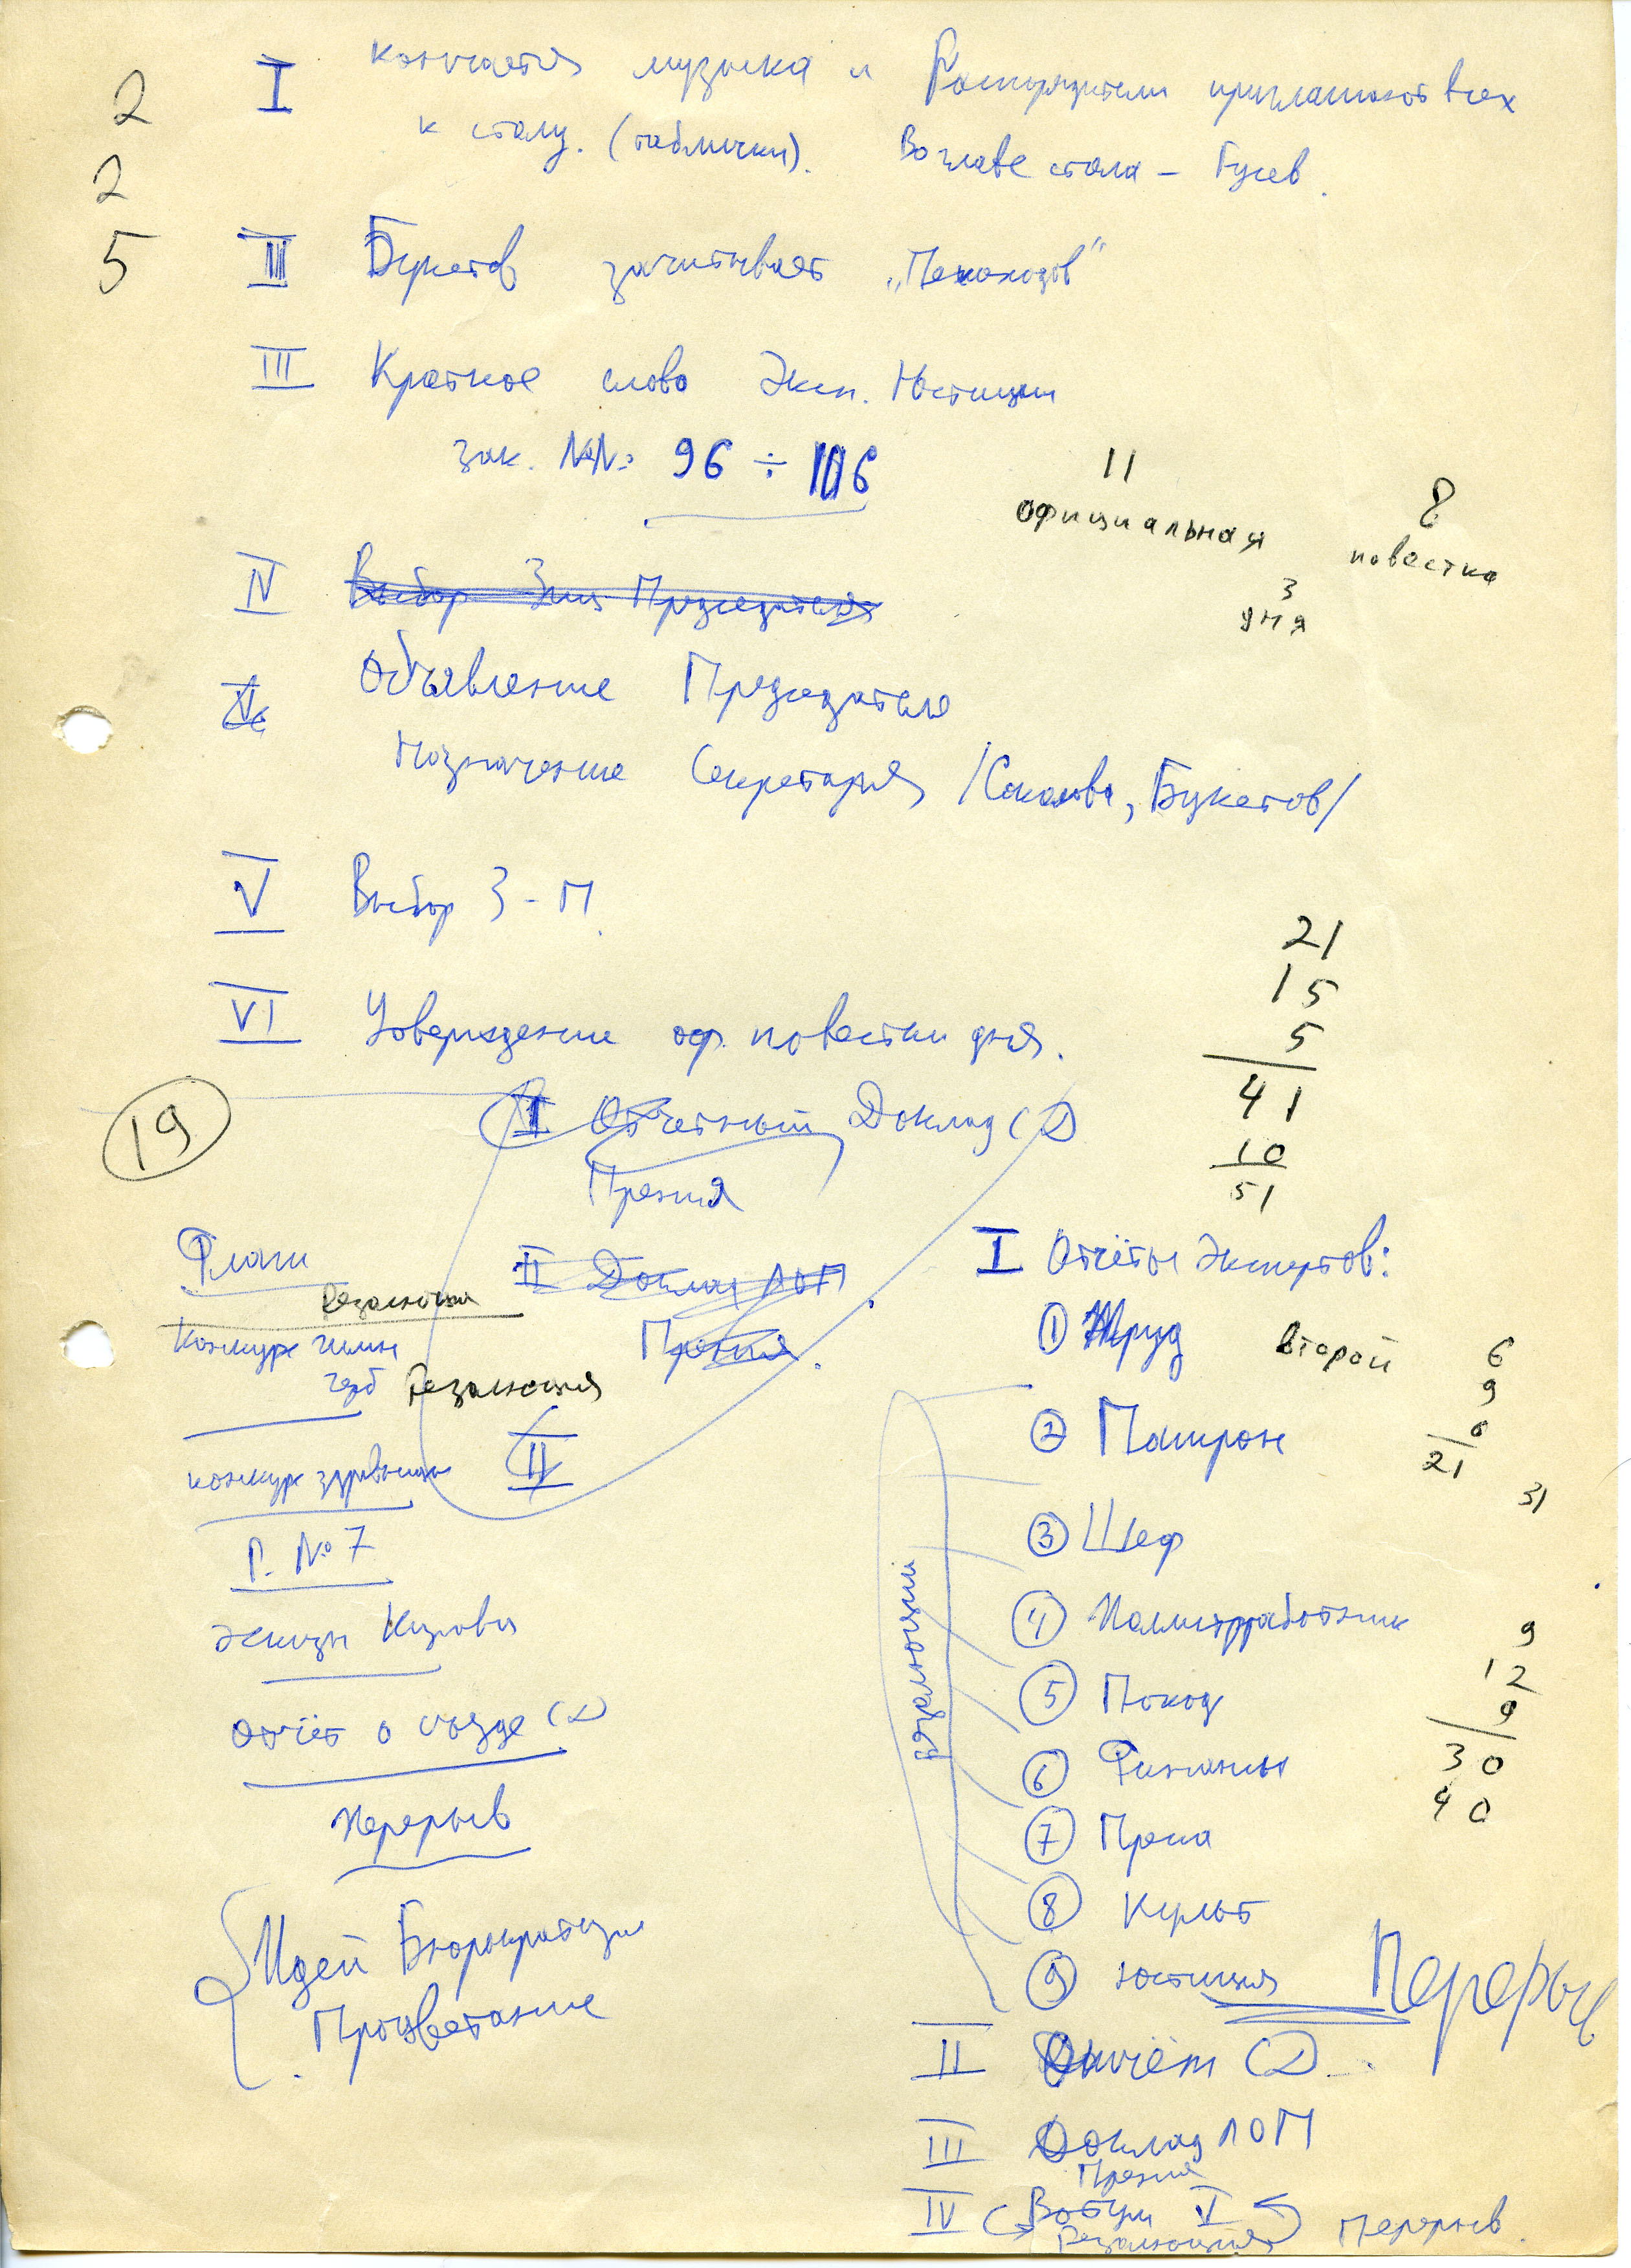 2
2
5
I Кончается музыка и Распорядители приглашают всех
к столу. (таблички). Во главе стола – Гусев.
II Букетов зачитывает „Пешеходов"
III Краткое слово Эксп. Юстиции
зак. №№: 96 ÷ 106
11
официальная
8
повестка
3
дня
IV Выбор Зам Председателя
IV Объявление Председателя
Назначение Секретаря /Соколова, Букетов/
V Выбор З-П.
VI Утверждение оф. повестки дня.
21
15
5
41
10
51
19
I Отчетный Доклад
Прения
II Доклад ЛОП
Прения.
II
Флаги
Резолюция
Конкурс гимн
герб Резолюция
конкурс здравниц
П. №7
Эскизы Кизрова
Отчёт о съезде
Перерыв
Идей Бюрократии
Процветание
I Отчёты Экспертов:
① Труд
второй
6
9
6
21
31
② Патрон
③ Шеф
④ Политрработник
⑤ Поход
⑥ Финансы
⑦ Пресса
⑧ Культ
⑨ Юстиция
резолюции
9
12
9
30
40
Перерыв
II Отчёт
III Доклад ЛОП
Прения
IV Вотум V
Резолюция
Перерыв.